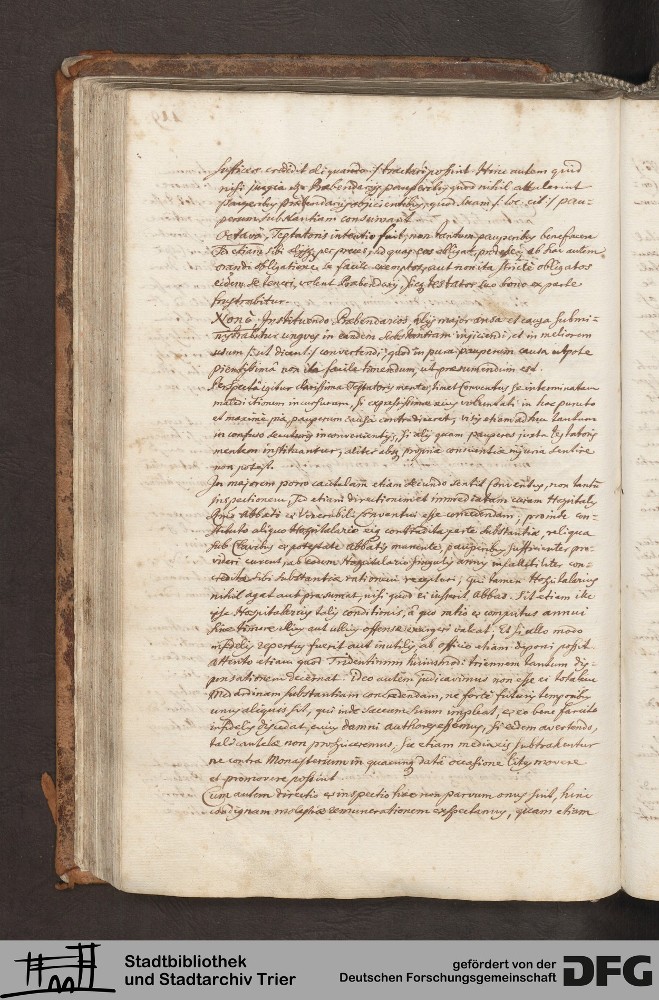 sufficere credidit aliquando si tractari possint. Hinc autem quid
nisi jurgia Prabendarijs pauperibus quod nihil attulerint
pauperibus prabendarijs objicientibus, quod suam pau-
perum substantiam consumant
Octavà, Testatoris intentio fuit, non tantum pauperibus benefacere
sed etiam sibi per preces, ad quas eos obligat, prodesse, ab hac autem
orandi obligatione se facile exemptos, aut non ita stricte obligatos
eidem se teneri, volent Prabendarij, sicque testator suo bono ex parte
frustrabitur.
Nonò. Instituendo Prabendarios, alijs major ansa et causa submi-
nistrabitur ungues in eandem substantiam injiciendi, et in meliorem
usum ut dicunt convertendi, quod in pura pauperum causa utpote
pientissima non ita facile timendum, ut præsumendum est.
Perspecta igitur clarissima Testatoris mente, timet Conventus se interminatam
maledictionem incursurum, si expressissimæ ejus voluntati in hoc puncto
et maxime pia pauperum causa contradiceret, visis etiam adhuc tantum
in confuso secuturis inconvenientijs, si alij quam pauperes juxta testatoris
mentem instituantur, aliter absque propria conscientiæ injuria sentire
non potest.
In majorem porro cautelam etiam secundo sentit Conventus, non tantum
inspectionem, sed etiam directionem et immediatam curam Hospitalis
Dno Abbati et Venerabili Conventui esse committendam, proinde con-
stituto aliquo Hospitalario eique contradita parte substantiæ, reliqua
sub Clavibus et potestate Abbatis manente, pauperibus sufficienter pro-
videri curent, ab eodem Hospitalario singulis annis infallibiliter con-
creditæ sibi substantiæ rationem recepturi, qui tamen Hospitalarius
nihil agat aut præsumat, nisi quod ei injunxerit Abbas. Sit etiam ille
ipse Hospitalarius talis conditionis, à quo ratio et computus annui
sine timore alicujus aut ullius offensæ exigeri valeat. Et si alio modo
infidelis repertus fuerit aut inutilis, ab officio etiam deponi possit
attento etiam quod Tridentinum huiusmodi triennem tantum dis-
pensationem decernat. Ideo autem judicavimus non esse ei totalem
Medardinam substantiam concedendam, ne forte futuris temporibus
unus aliquis sit, qui inde saccum suum impleat, et eo bene farcito
infidelis discedat, cuius damni authores essemus, si eidem avertendo,
tali cautela non prospiceremus, sic etiam media eis subtrahentur
ne contra Monasterium in quacunque data occasione litis movere
et promovere possint
Cum autem directio et inspectio hæc non parvum onus sint, hinc
condignam molestiæ remunerationem exspectamus, quam etiam
Stadtbibliothek
und Stadtarchiv Trier
gefördert von der
Deutschen Forschungsgemeinschaft
DFG